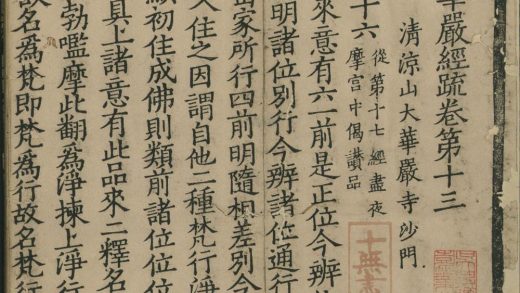 華嚴經疏卷第十三
清涼山大華嚴寺沙門
十六
從第十七經盡夜
摩宮中偈讚品
來意有六一前是正位今辨
明諸位別行今辨諸位通行
所行四前明隨相差別今
住之因謂自他二種梵行淨
初住成佛則類前諸位位位
具上諸意有此品來二釋名
勃嚂摩此翻爲淨揀上淨行
故名爲梵即梵爲行故名梵行